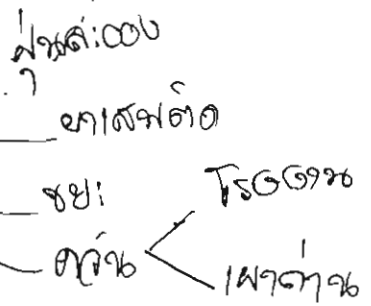 ฝุ่นละออง
ยาเสพติด
ขยะ
โรงงาน
ควัน
เผาถ่าน